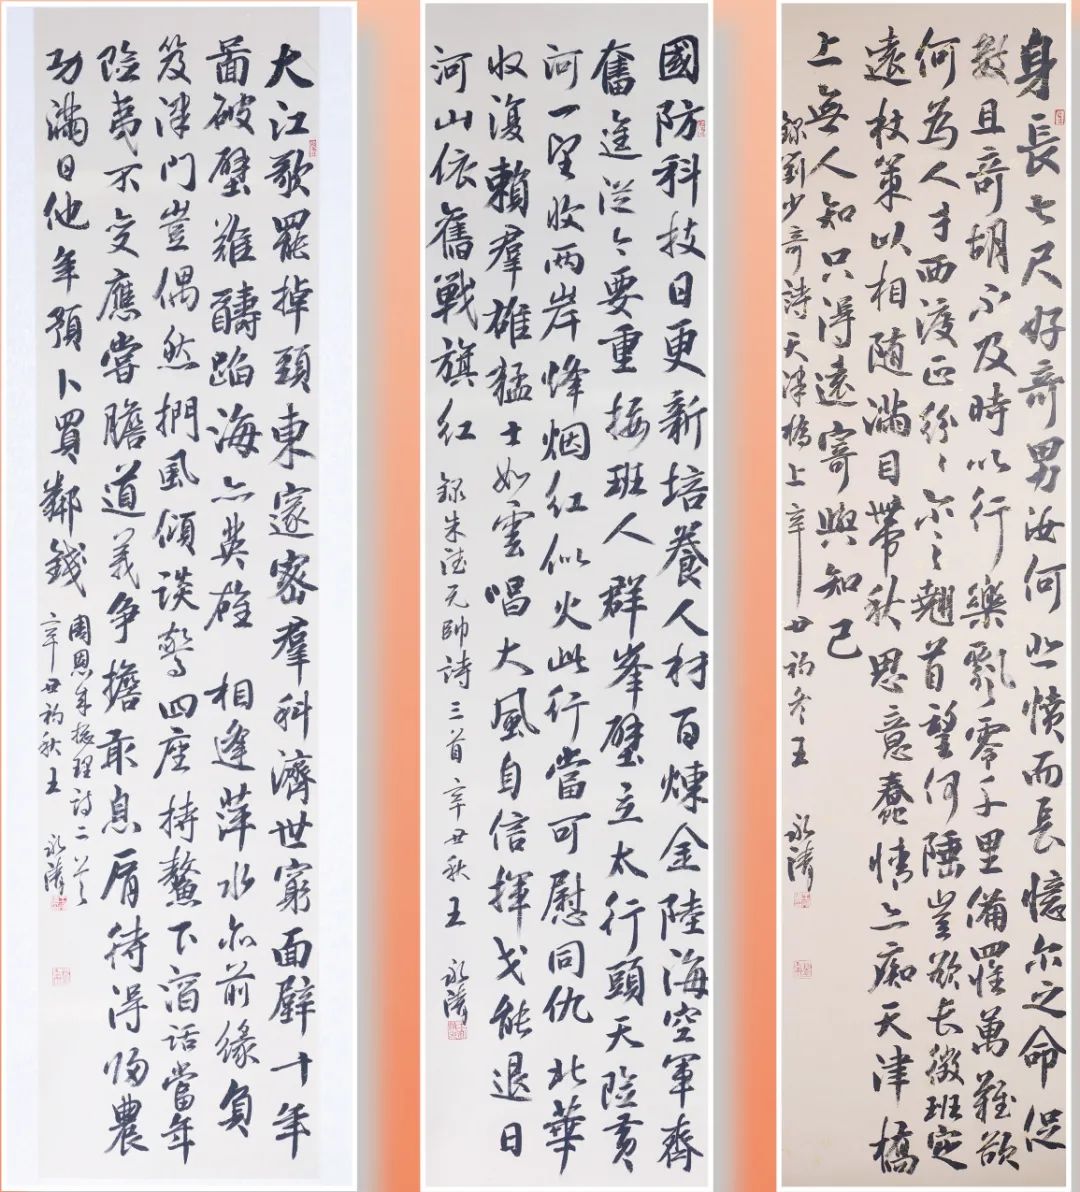 大江歌罷掉頭東邃密羣科濟世窮面壁十年
圖破壁難醻蹈海亦英雄 相逢萍水亦前緣負
笈津門豈偶然捫虱傾談驚四座持螯下酒話當年
險夷不變應嘗膽道義爭擔敢息肩待得歸農
功滿日他年預卜買鄰錢
周恩来振理诗二首
辛丑初秋王永濤
國防科技日更新培養人材百煉金陸海空軍齊
奮進從々要重接班人 群峯壁立太行頭天險黃
河一望收兩岸烽烟紅似火此行當可慰同仇 北華
收復賴羣雄猛士如雲唱大風自信揮戈能退日
河山依舊戰旗紅 録朱德元帥詩三首 辛丑秋王永濤
身長七尺好奇男汝何悲憤而長憶尔之命促
數且奇胡不及時以行樂飄零千里備罹萬難欲
何為人才西渡正紛々尔之翹首望何陲豈欲長徵班定
遠杖策以相隨滿目帶秋思意蠢情亦痴天津橋
上無人知只得遠寄與知己
録劉少奇詩天津橋上辛丑初冬王永濤